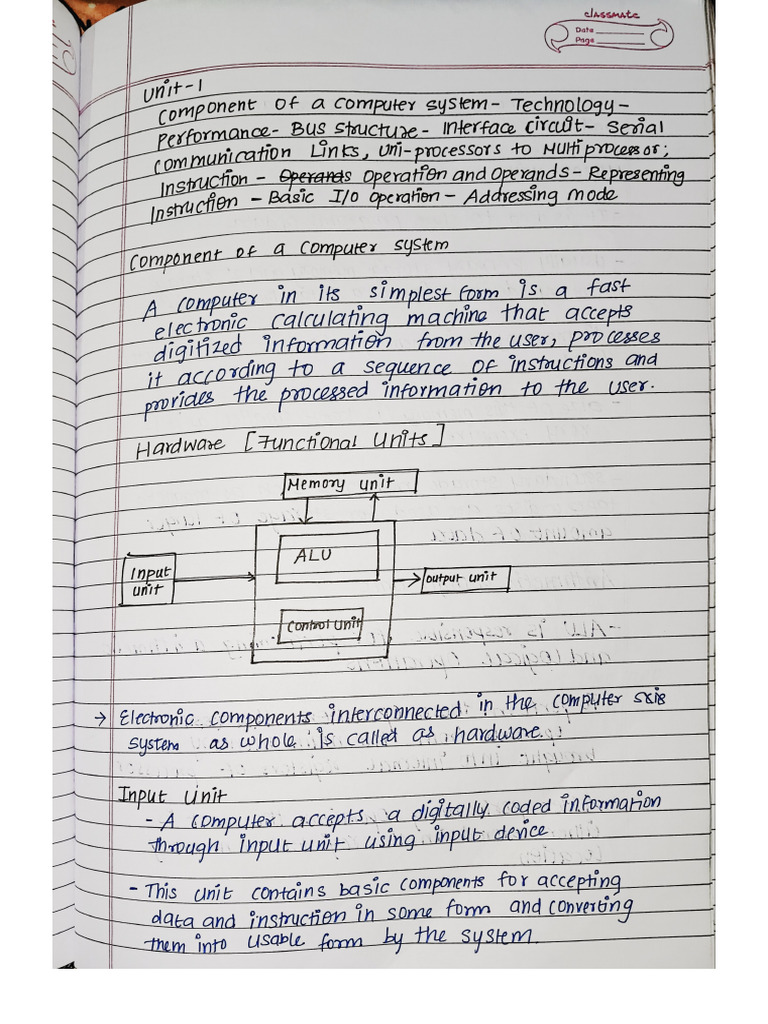 classmate
Date
Page
Unit-1
Component of a computer system - Technology -
Performance - Bus structure - Interface circuit - Serial
Communication Links, Uni-processors to Multiprocessor;
Instruction - Operands Operation and Operands - Representing
Instruction - Basic I/O operation - Addressing mode
Component of a computer system
A computer in its simplest form is a fast
electronic calculating machine that accepts
digitized information from the user, processes
it according to a sequence of instructions and
provides the processed information to the user.
Hardware [Functional Units]
Memory unit
ALU
Input
unit
output unit
Control unit
→ Electronic components interconnected in the computer
system as whole is called as hardware.
Input Unit
- A computer accepts a digitally coded information
through input unit using input device
- This unit contains basic components for accepting
data and instruction in some form and converting
them into usable form by the system.